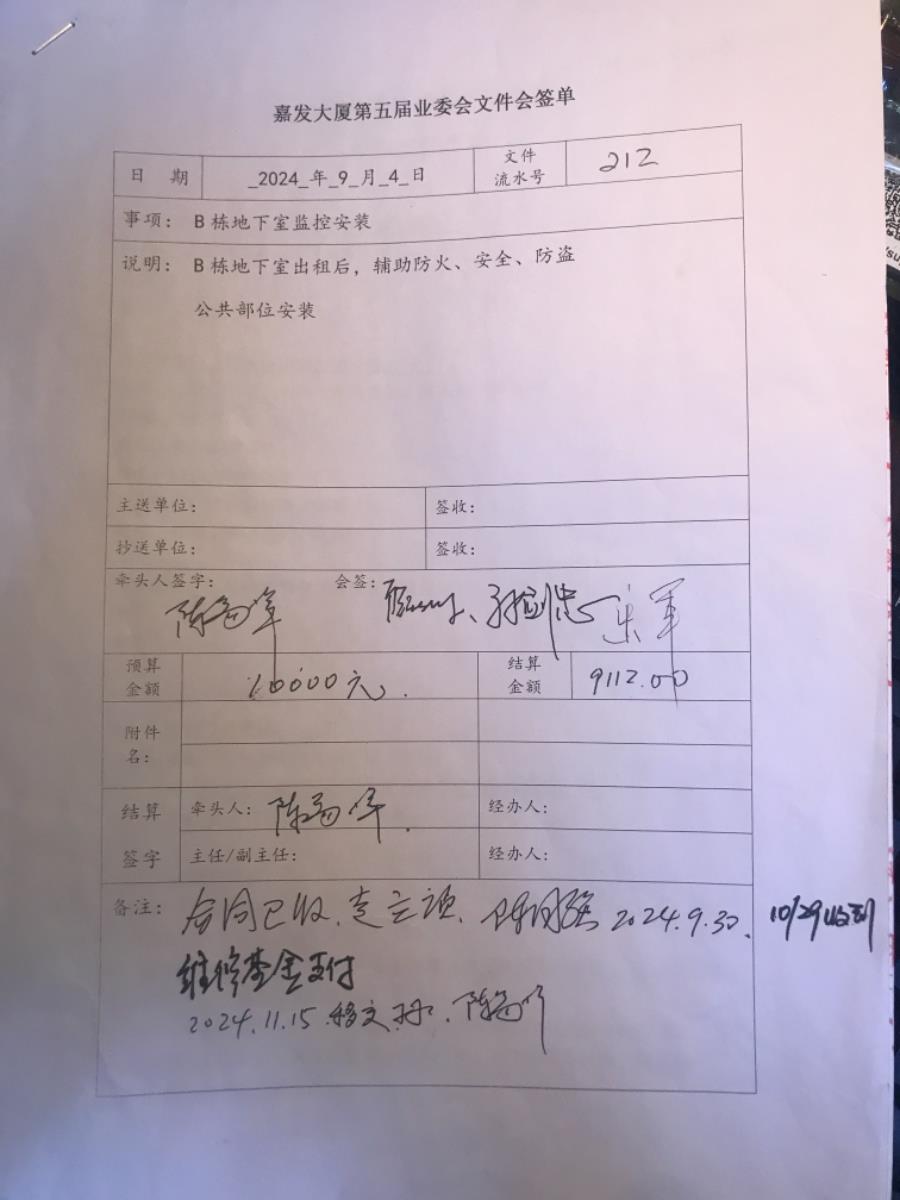 嘉发大厦第五届业委会文件会签单
日 期 _2024_年_9_月_4_日 文件流水号 212
事项： B 栋地下室监控安装
说明： B 栋地下室出租后，辅助防火、安全、防盗
公共部位安装
主送单位： 签收：
抄送单位： 签收：
牵头人签字： 会签：
预算金额 10000元. 结算金额 9112.00
附件名：
结算签字 牵头人： 经办人：
主任/副主任： 经办人：
备注： 合同已收、走立项、 2024.9.30. 10/29收到
维修基金支付
2024.11.15 移交